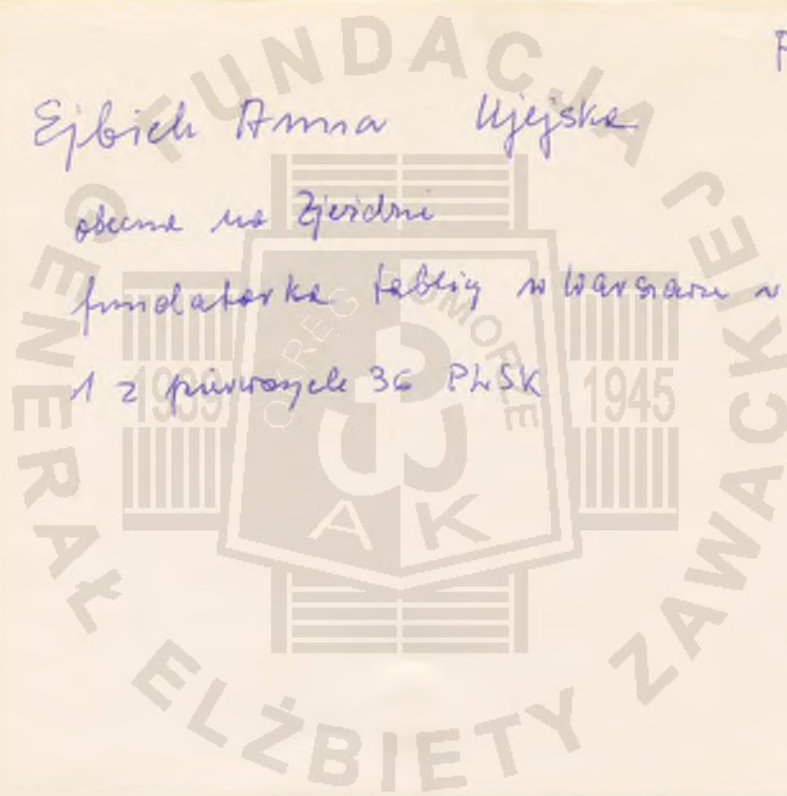 Ejbich Anna Ujejska
obecna na Zjeździe
fundatorka tablicy w Warszawie w
1 z pierwszych 36 PLSK
FUNDACJA
GENERAŁ ELŻBIETY ZAWACKIEJ
OKRĘG POMORZE
1939 1945
AK